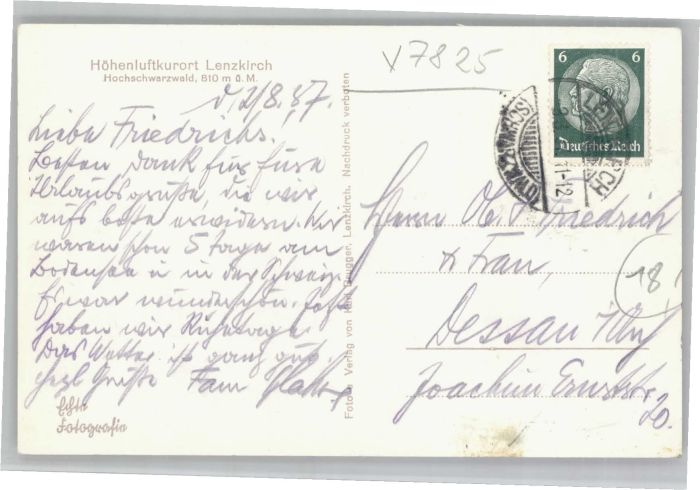 Höhenluftkurort Lenzkirch
Hochschwarzwald, 810 m ü. M.
V7825
d. 2/8.37.
Liebe Friedrichs!
Besten Dank für Eure
Urlaubsgrüße, die wir
aufs beste erwidern. Wir
waren schon 5 Tage am
Bodensee u in der Schweiz.
Es war wunderschön. Jetzt
haben wir Ruhetage.
Das Wetter ist ganz gut.
Herzl Grüße Fam
Echte
Fotografie
Foto u. Verlag von Karl Brugger, Lenzkirch. Nachdruck verboten
6 6
Deutsches Reich
LENZKIRCH
(SCHWARZWALD)
11-12
Herrn Friedrich
u Frau,
Dessau
Joachim Ernststr.
20.
18